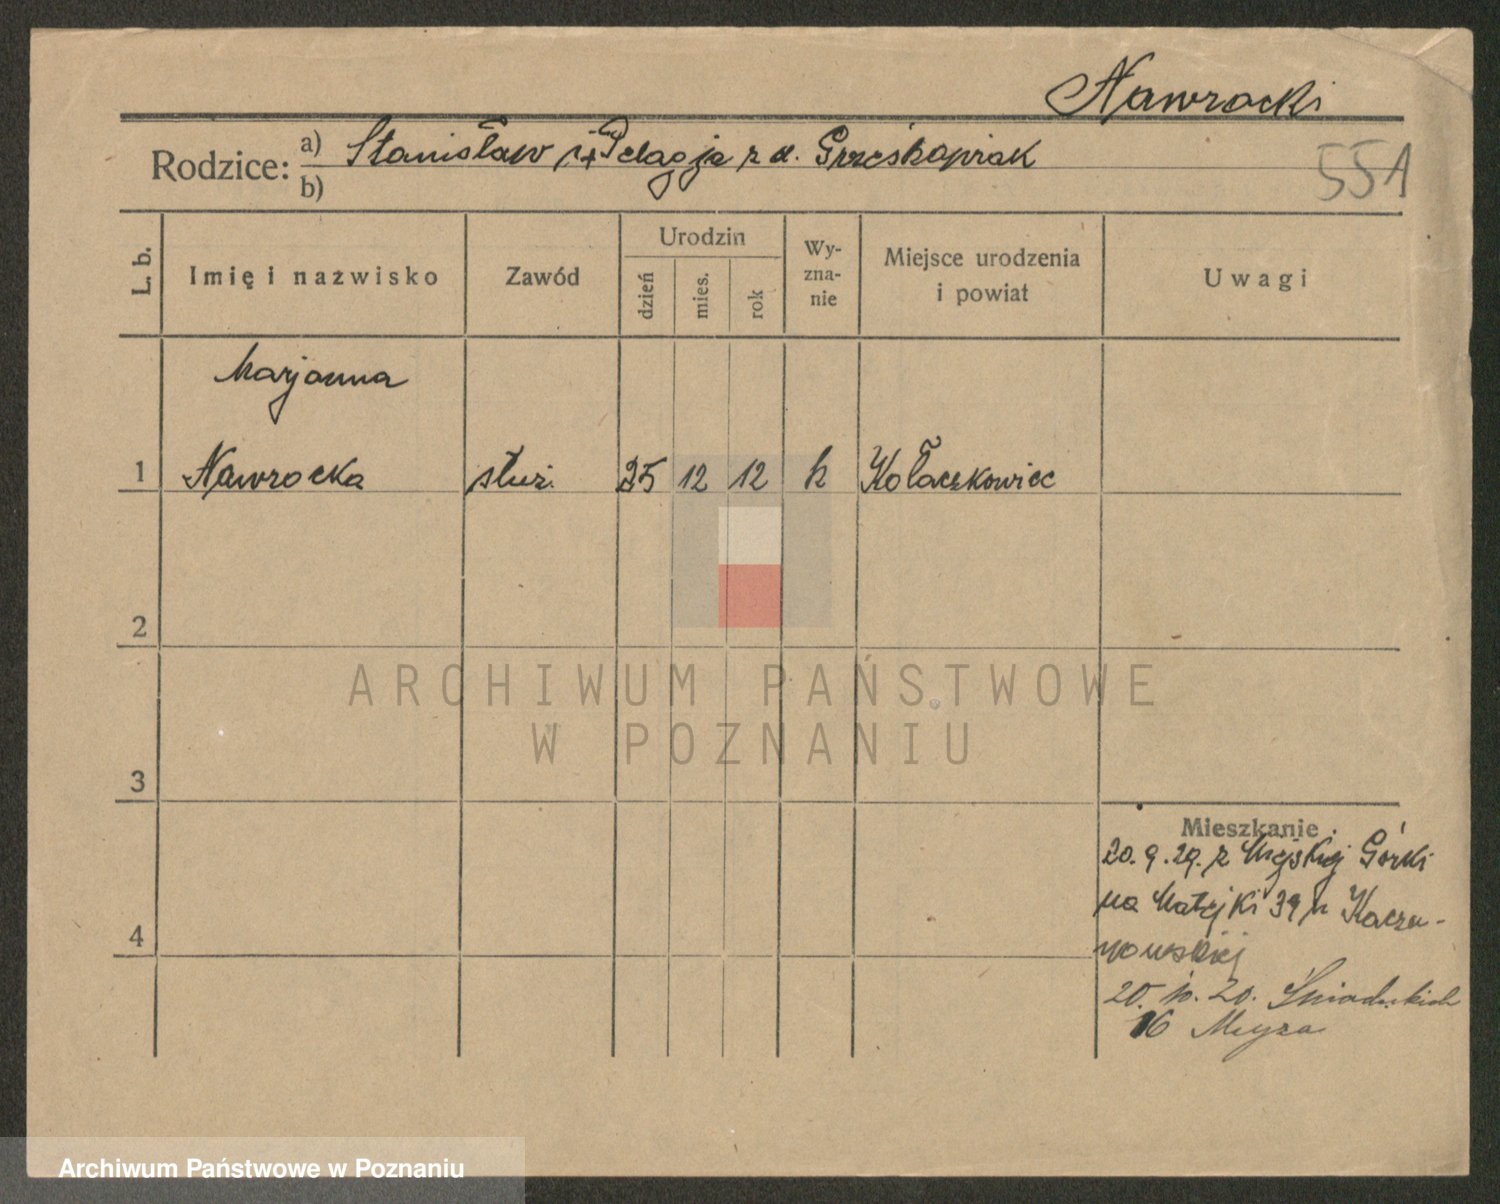 Nawrocki
Rodzice: a) Stanisław i Pelagja z d. Grześkowiak
b)
55A
L. b.
Imię i nazwisko
Zawód
Urodzin
dzień
mies.
rok
Wy-
zna-
nie
Miejsce urodzenia
i powiat
Uwagi
Marjanna
1 Nawrocka służ. 25 12 12 k Kołaczkowice
2
3
4
Mieszkanie
20.9.29. z Miejskiej Górki
na Matejki 39 u Kacza-
nowskiej
20. Śniadeckich
16
ARCHIWUM PAŃSTWOWE
W POZNANIU
Archiwum Państwowe w Poznaniu